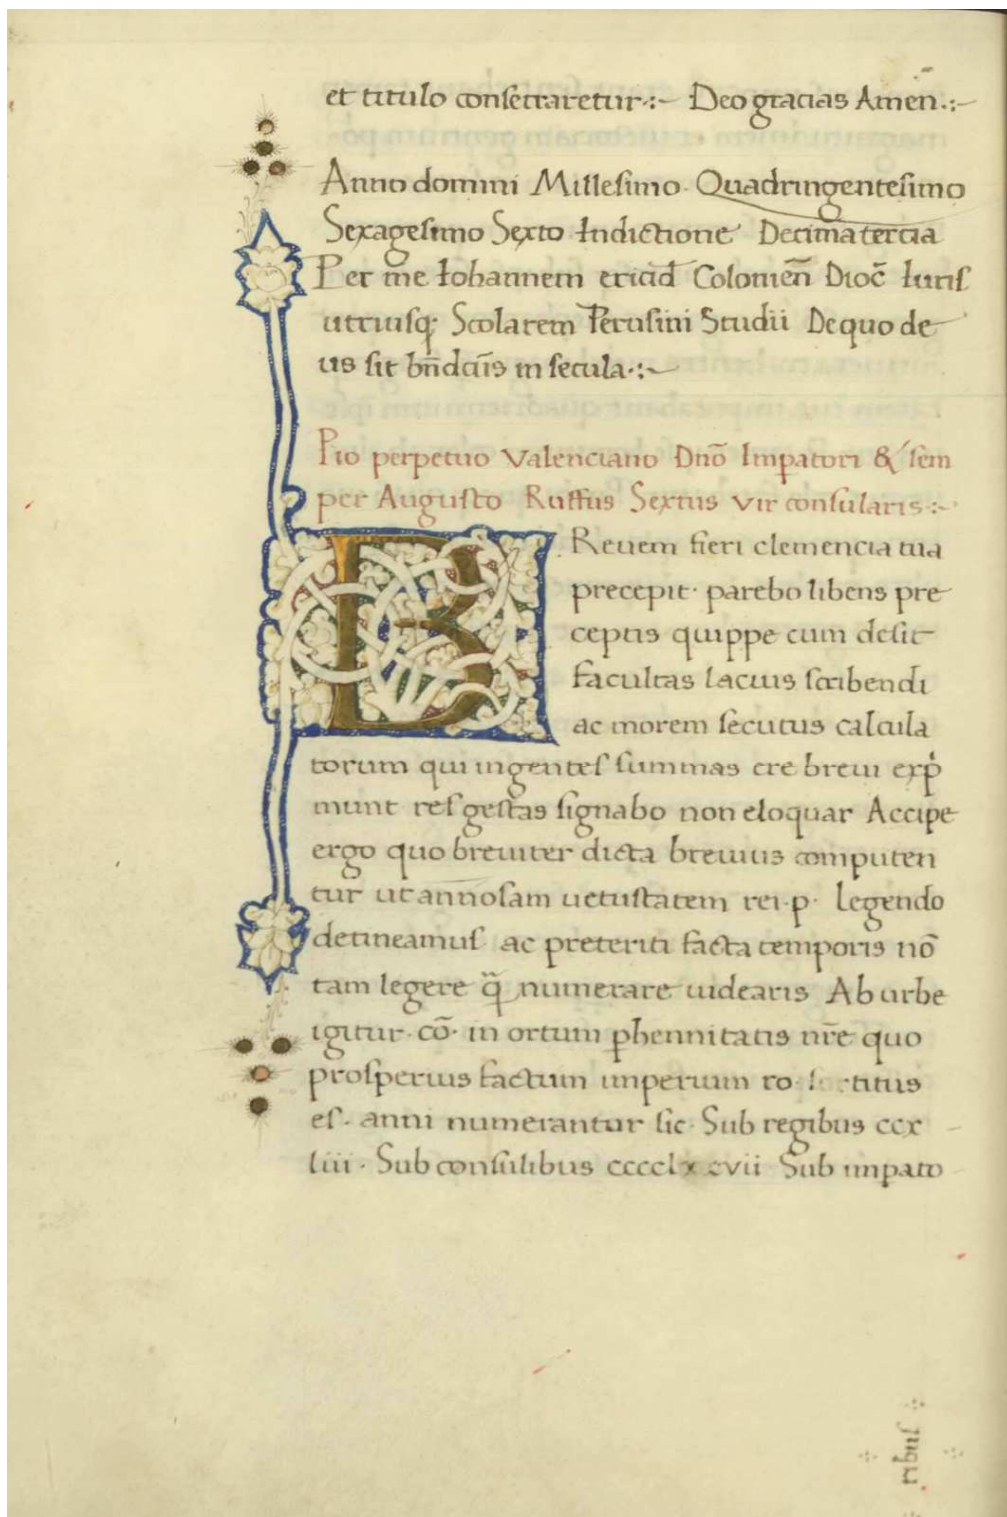 et titulo consecraretur·:~ Deo gracias Amen̄.:~
Anno domini Millesimo· Quadringentesimo
Sexagesimo Sexto Indictione Decimatercia
Per me Iohannem Colomen̄ Dioc̄ Iuris
utriusq; Scolarem Perusini Studii De quo de
us sit bn̄dc̄is in secula·:~
Pio perpetuo Valenciano Dn̄o Imꝑatori & sem
per Augusto Ruffus Sextus vir consularis:~
BReuem fieri clemencia tua
precepit· parebo libens pre
ceptis quippe cum desit
facultas lacius scribendi
ac morem secutus calcula
torum qui ingentes summas ere breui exp̍
munt res gestas signabo non eloquar Accipe
ergo quo breuiter dicta breuius computen
tur ut annosam uetustatem rei·p· legendo
detineamus ac preteriti facta temporis nō
tam legere q̄ numerare uidearis Ab urbe
igitur· cō· in ortum ꝑhennitatis nr̄e quo
prosperius factum imperium ro· titus
es· anni numerantur sic· Sub regibus ccx
liii· Sub consulibus cccclxxcvii Sub imꝑato
ribus